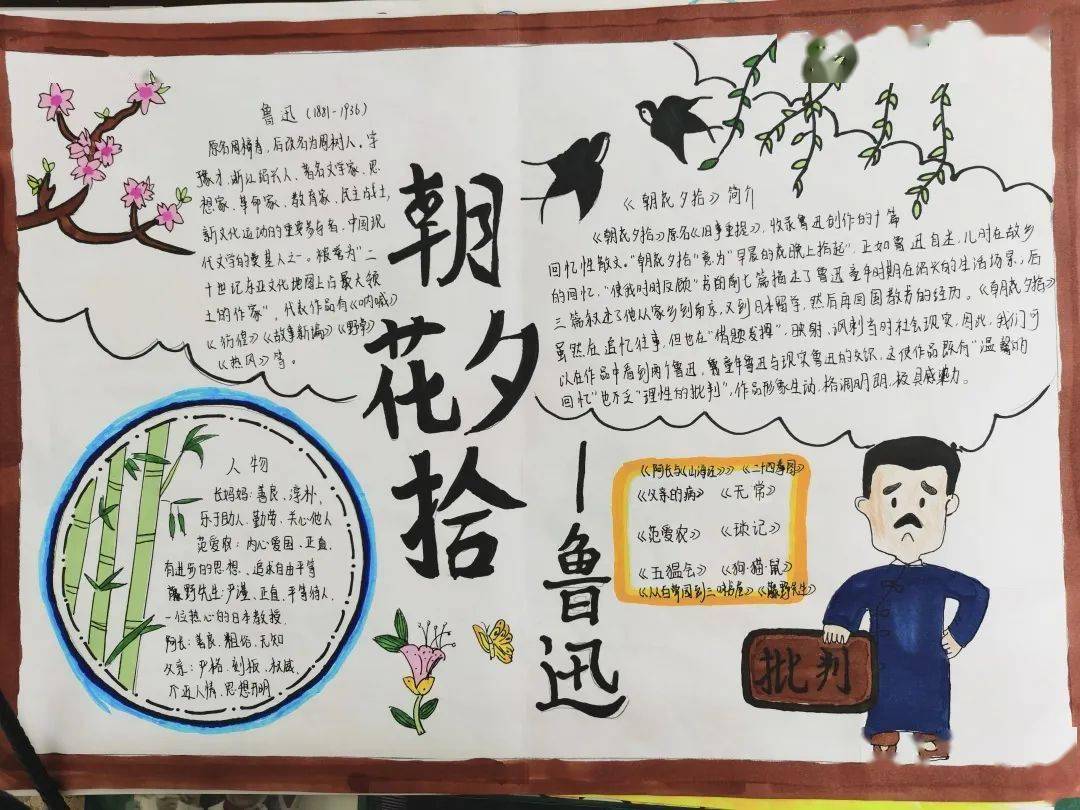 鲁迅(1881-1936)
原名周樟寿,后改名为周树人。字
豫才,浙江绍兴人、著名文学家、思
想家、革命家、教育家、民主战士,
新文化运动的重要参与者,中国现
代文学的奠基人之一。被誉为"二
十世纪东亚文化地图上占最大领
土的作家"。代表作品有《呐喊》
《彷徨》《故事新编》《野草》
《热风》等。
朝
花夕
拾
—鲁迅
《朝花夕拾》简介
《朝花夕拾》原名《旧事重提》,收录鲁迅创作的十篇
回忆性散文。"朝花夕拾"意为"早晨的花晚上拾起",正如鲁迅自述,儿时在故乡
的回忆,"使我时时反顾"书的前七篇描述了鲁迅童年时期在绍兴的生活场景,后
三篇叙述了他从家乡到南京,又到日本留学,然后再回国教书的经历。《朝花夕拾》
虽然在追忆往事,但也在"借题发挥",映射、讽刺当时社会现实,因此,我们可
以在作品中看到两个鲁迅,童年鲁迅与现实鲁迅的,这使作品既有"温馨的
回忆"也不乏"理性的批判",作品形象生动,格调明朗,极具感染力。
人物
长妈妈:善良、淳朴,
乐于助人、勤劳、关心他人
范爱农:内心爱国、正直,
有进步的思想、追求自由平等
藤野先生:严谨、正直、平等待人,
一位热心的日本教授.
阿长:善良、粗俗、无知
父亲:严格、刻板、权威,
不近人情、思想开明
《阿长与《山海经》》 《二十四孝图》
《父亲的病》 《无常》
《范爱农》 《琐记》
《五猖会》 《狗·猫·鼠》
《从百草园到三味书屋》《藤野先生》
批判